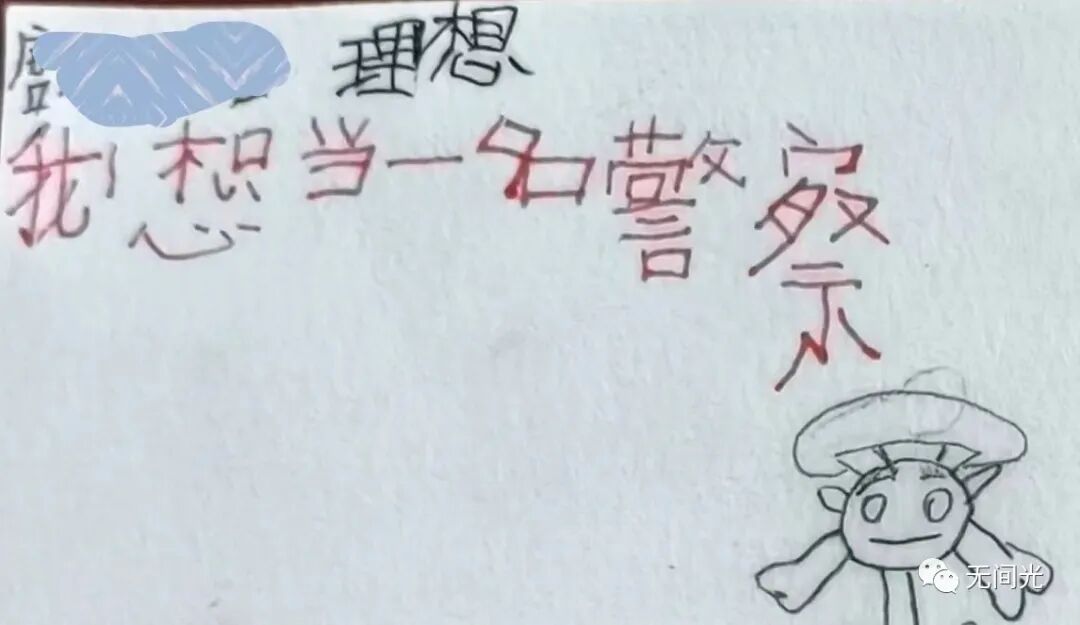 理想
我想当一名警察
无间光